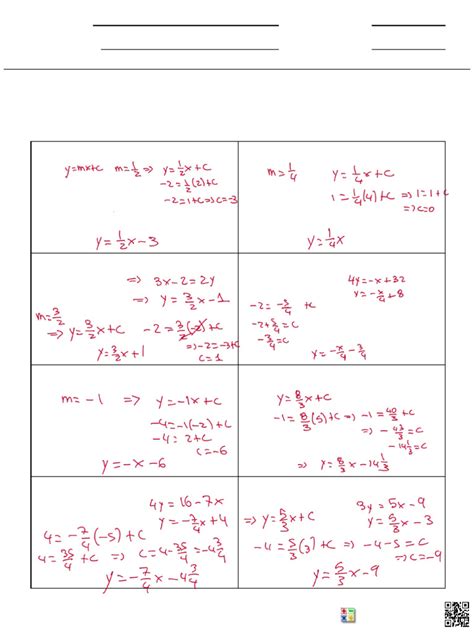 y=mx+c m=1/2 => y=1/2x+c
-2=1/2(2)+c
-2=1+c=>c=-3
y=1/2x-3
m=1/4 y=1/4x+c
1=1/4(4)+c =>1=1+c
=>c=0
y=1/4x
=> 3x-2=2y
=> y=3/2x-1
m=3/2
=>y=3/2x+c -2=3/2(-2)+c
=>-2=-3+c
y=3/2x+1 c=1
4y=-x+32
y=-x/4+8
-2=-5/4+c
-2+5/4=c
-3/4=c
y=-x/4-3/4
m=-1 => y=-1x+c
-4=-1(-2)+c
-4=2+c
c=-6
y=-x-6
y=8/3x+c
-1=8/3(5)+c=>-1=40/3+c
=>-43/3=c
-14 1/3=c
=>y=8/3x-14 1/3
4y=16-7x
y=-7/4x+4
4=-7/4(-5)+c
4=35/4+c => c=4-35/4=-4 3/4
y=-7/4x-4 3/4
3y=5x-9
=>y=5/3x+c y=5/3x-3
-4=5/3(3)+c=>-4-5=c
=>c=-9
y=5/3x-9